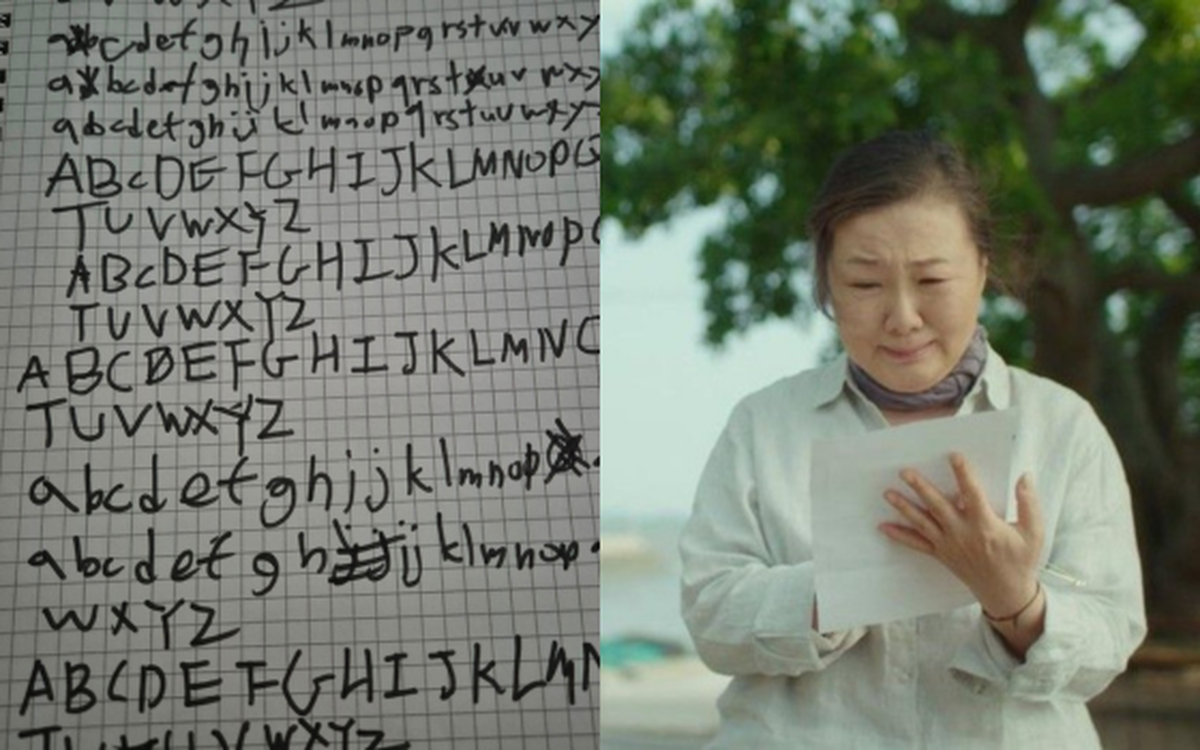 abcdefghijklmnopqrstuvwxy
abcdefghijklmnopqrstuvwxy
abcdefghijklmnopqrstuvwxy
ABcDEFGHIJKLMNOPQ
TUVWXYZ
ABcDEFGHIJKLMNOP
TUVWXYZ
ABCDEFGHIJKLMN
TUVWXYZ
abcdefghijklmnop
abcdefghijklmnop
WXYZ
ABCDEFGHIJKLMN